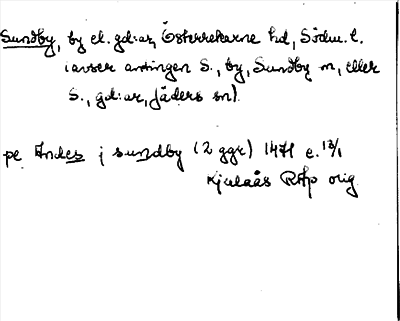 Sundby, by el. gd:ar, Österrekarne hd, Södm. l.
(avser antingen S., by, Sundby sn, eller
S., gd:ar, Jäders sn).
pe Andes j sundby (2 ggr) 1471 e. 13/1
Kjulaås RAp orig